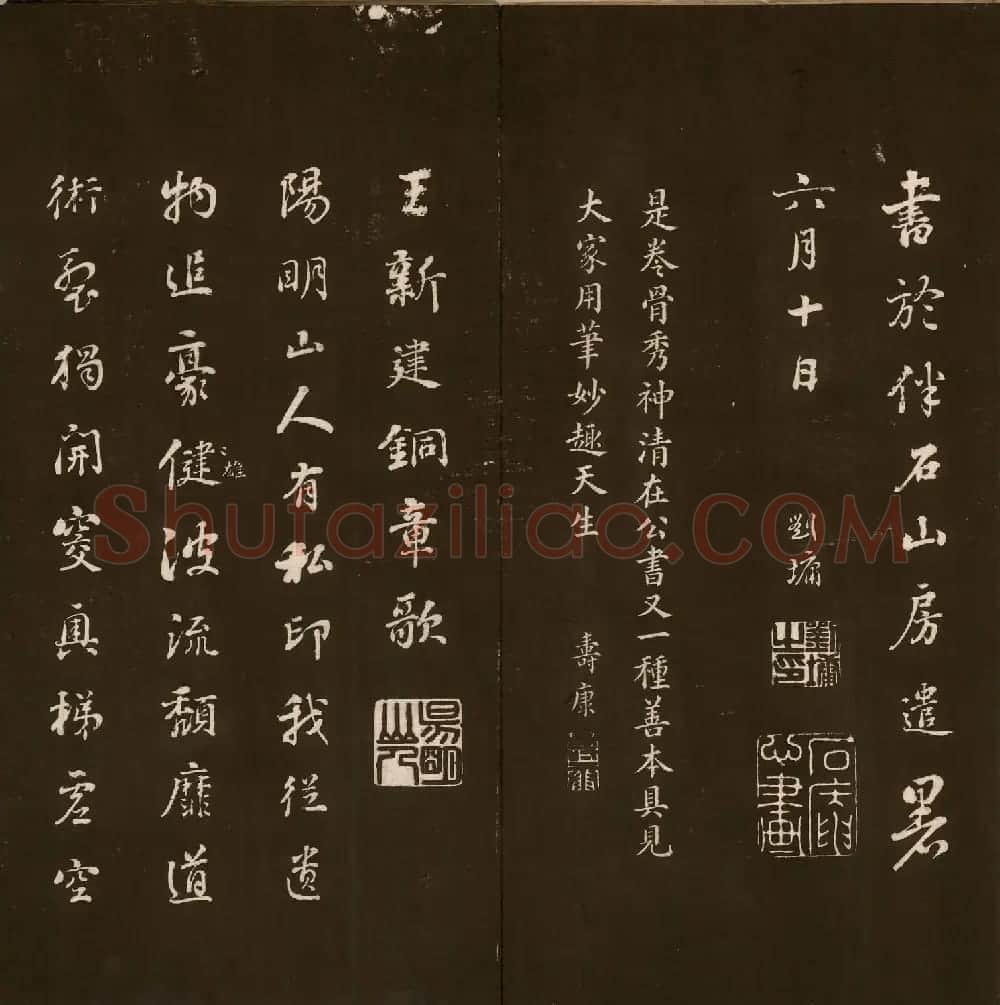 書於伴石山房遣暑
六月十日 劉墉
劉墉之印
是卷骨秀神清在公書又一種善本具見
大家用筆妙趣天生 壽康
王新建銅章歌
昜明山人
陽明山人有私印我從遺
物追豪健波流頹靡道
雄
術裂獨開窔奧梯虛空
Shufaziliao.COM